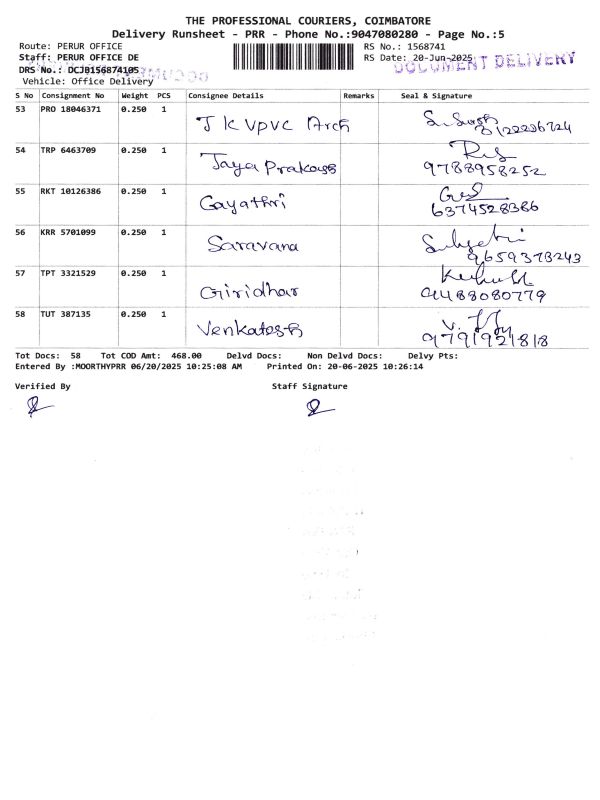 THE PROFESSIONAL COURIERS, COIMBATORE
Delivery Runsheet - PRR - Phone No.:9047080280 - Page No.:5
Route: PERUR OFFICE
RS No.: 1568741
Staff: PERUR OFFICE DE
RS Date: 20-Jun-2025
DOCUMENT DELIVERY
DRS No.: DCJB156874105
Vehicle: Office Delivery
S No Consignment No Weight PCS Consignee Details Remarks Seal & Signature
53 PRO 18046371 0.250 1 J K Vpvc Arch
54 TRP 6463709 0.250 1 Jaya Prakash
9788958252
55 RKT 10126386 0.250 1 Gayathri
6374528386
56 KRR 5701099 0.250 1 Saravana
9659378243
57 TPT 3321529 0.250 1 Giridhar
9488080779
58 TUT 387135 0.250 1 Venkatesh
9791921818
Tot Docs: 58 Tot COD Amt: 468.00 Delvd Docs: Non Delvd Docs: Delvy Pts:
Entered By :MOORTHYPRR 06/20/2025 10:25:08 AM Printed On: 20-06-2025 10:26:14
Verified By Staff Signature